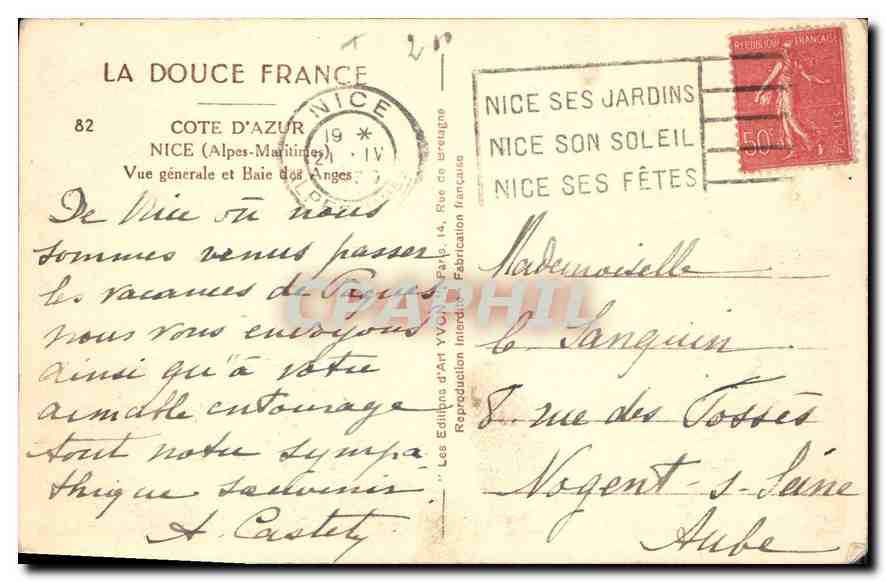 LA DOUCE FRANCE
82
COTE D'AZUR
NICE (Alpes-Maritimes)
Vue générale et Baie des Anges
De Nice où nous
sommes venus passer
les vacances de Pâques
nous vous envoyons
ainsi qu'à votre
aimable entourage
tout notre sympa-
thique souvenir
A. Castety
" Les Editions d'Art YVON " Paris, 14, Rue de Bretagne
Reproduction Interdite Fabrication française
NICE
19 *
21 IV
NICE SES JARDINS
NICE SON SOLEIL
NICE SES FÊTES
REPUBLIQUE FRANÇAISE
50c
POSTES
CPAPHIL
Mademoiselle
C Sanguin
8 rue des Fossés
Nogent-s-Seine
Aube